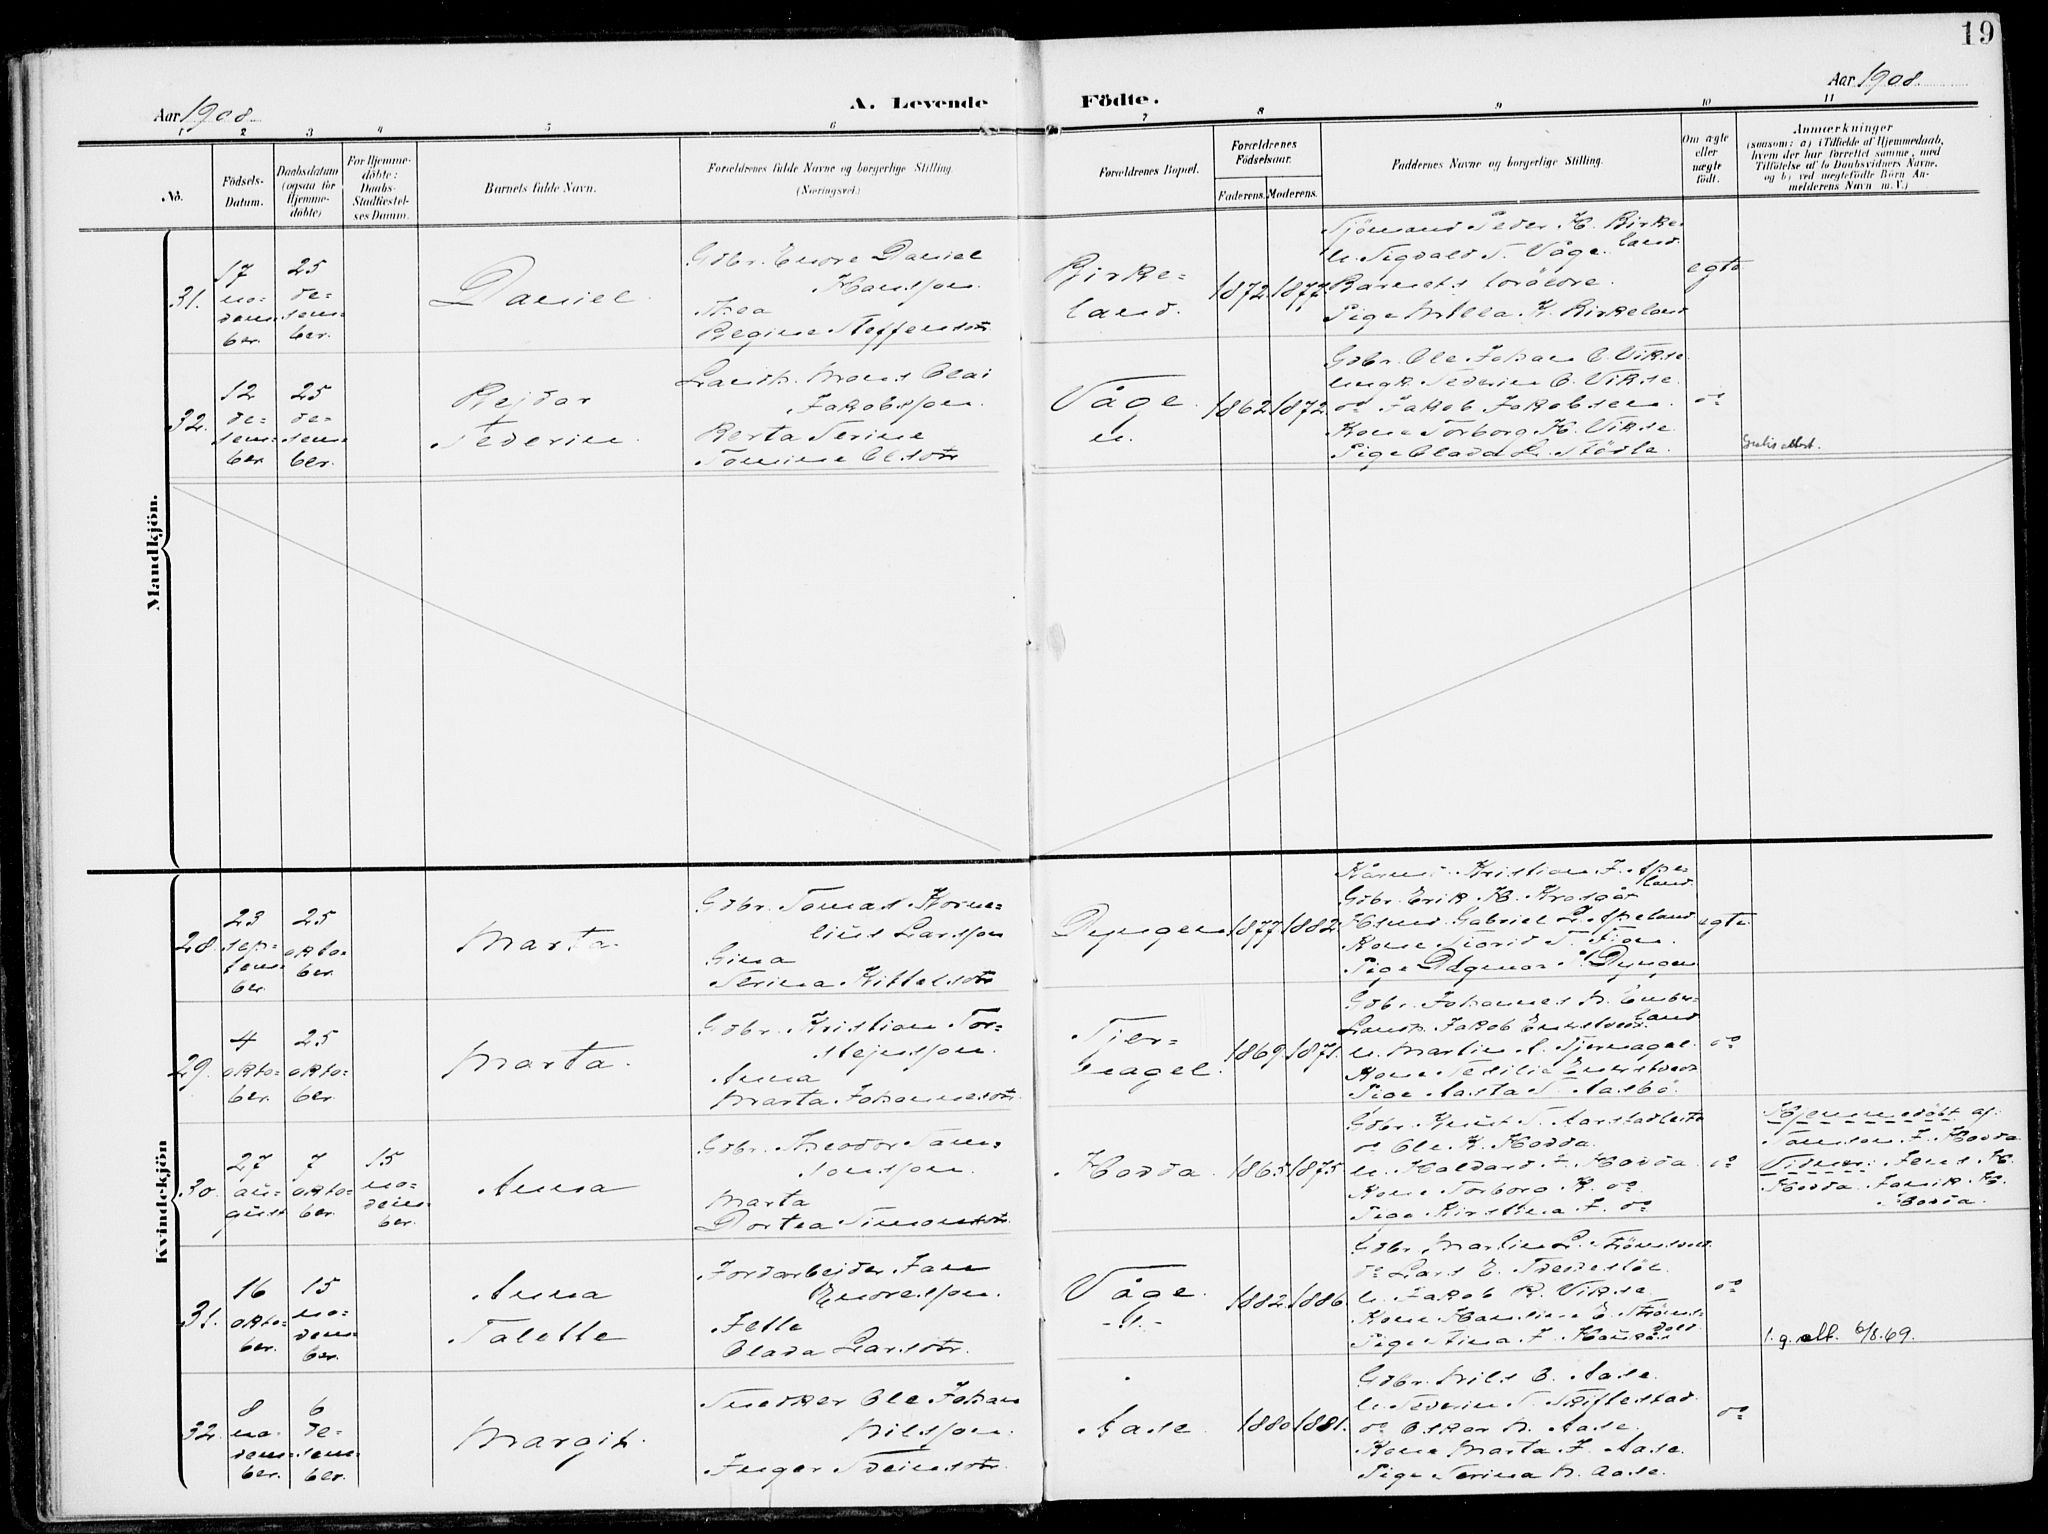 19
Aar 1908.
A. Levende Födte.
Aar 1908.
1 2 3 4 5 6 7 8 9 10 11
No.
Födsels-Datum.
Daabsdatum (ogsaa for Hjemmedöbte)
For Hjemmedöbte: Daabs-Stadfæstelses Datum.
Barnets fulde Navn.
Forældrenes fulde Navne og borgerlige Stilling.
(Næringsvei.)
Forældrenes Bopæl.
Forældrenes Födselsaar.
Faderens. Moderens.
Faddernes Navne og borgerlige Stilling.
Om ægte eller uægte födt.
Anmærkninger
(saasom: a) i Tilfælde af Hjemmedaab, hvem der har forrettet samme, med Tilföielse af to Daabsvidners Navne, og b) ved uægtefödte Börn Anmelderens Navn m. V.)
Mandkjön.
31.
17
november.
25
desember.
Daniel.
Gdbr. Endre Daniel
Hansson.
Thea
Regine Steffensdtr
Birke=
land.
1872. 1877.
Sjömand Peder H. Birke=
land.
U. Sigvald T. Våge.
Barnets forældre.
Pige Milla K. Birkeland
egte
32.
12
desember
25
desember.
Rejdar
Severin.
Landh. Mons Olai
Jakobsson.
Berta Serine
Tomine Olsdtr
Våge.
n.
1862. 1872.
Gdbr. Ole Johan O. Vikse
Ungk. Severin O. Vikse.
do Jakob Jakobsen.
Kone Torborg H. Vikse.
Pige Olava L. Stödle.
do
Kvindekjön
28.
23
september.
25
oktober.
Marta.
Gdbr. Tomas Korne=
lius Larsson
Gina
Serina Kittelsdtr
Dyngen
1877. 1882.
Kristian J. Ape=
land.
Gdbr. Erik H. Krosgår
Husmd. Gabriel L. Apeland
Kone Sigrid T. Tjon.
Pige Dagmar Dyngen
egte
29.
4
oktober.
25
oktober.
Marta.
Gdbr. Kristian Tor=
stejnsson.
Anna
Marta Johannesdtr.
Tjer=
nagel.
1869. 1871.
Gdbr. Johannes M. Ember=
land
Landh. Jakob Enestvedt
U. Martin A. Tjernagel.
Kone Sesilie Enestvedt
Pige Aasta T. Aasbö.
do
30.
27
august
7
oktober.
15
november.
Anna
Gdbr. Theodor Sam=
sonsson.
Marta
Dortea Simonsdtr.
Hovda
1865. 1875.
Gdbr. Knut T. Aarstadtveito
do Ole K. Hovda.
U. Haldard J. Hovda.
Kone Torborg K. do.
Pige Kirstina J. do
do
Hjemmedöbt af:
Samson J. Hovda
Vidner: Jens H.
Hovda. Jakob H.
Hovda.
31.
16
oktober.
15
november.
Anna
Talette
Jordarbejder Jan
Endresson.
Jette
Olava Larsdtr.
Våge.
-n.-
1882. 1886.
Gdbr. Martin L. Strömsvold.
do Lars E. Tveitestöl.
U. Jakob R. Vikse
Kone Hansine E. Ströms=
vold.
Pige Stina J. Haugår
do
l.g. att. 6/8.69.
32.
8
november.
6
desember.
Margit.
Snedker Ole Johan
Nilsson.
Inger Sveinsdtr
Aase.
1880. 1881.
Gdbr. Nils O. Aase.
U. Severin T. Skiftestad.
do Oskar N. Aase.
Kone Marta J. Aase.
Pige Serina N. Aase.
do